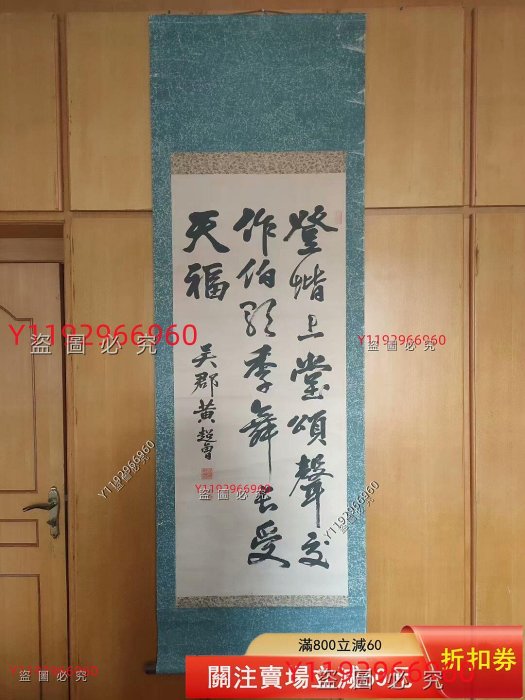 登堦上堂頌聲交
作伯歌季舞長受
天福
吳郡黃超曾
Y1192966960
盜圖必究
Y1192966960
盜圖必究
Y1192966960
盜圖必究
Y1192966960
盜圖必究
Y1192966960
盜圖必究
Y1192966960
盜圖必究
Y1192966960
盜圖必究
滿800立減60
關注賣場立減60元
折扣券